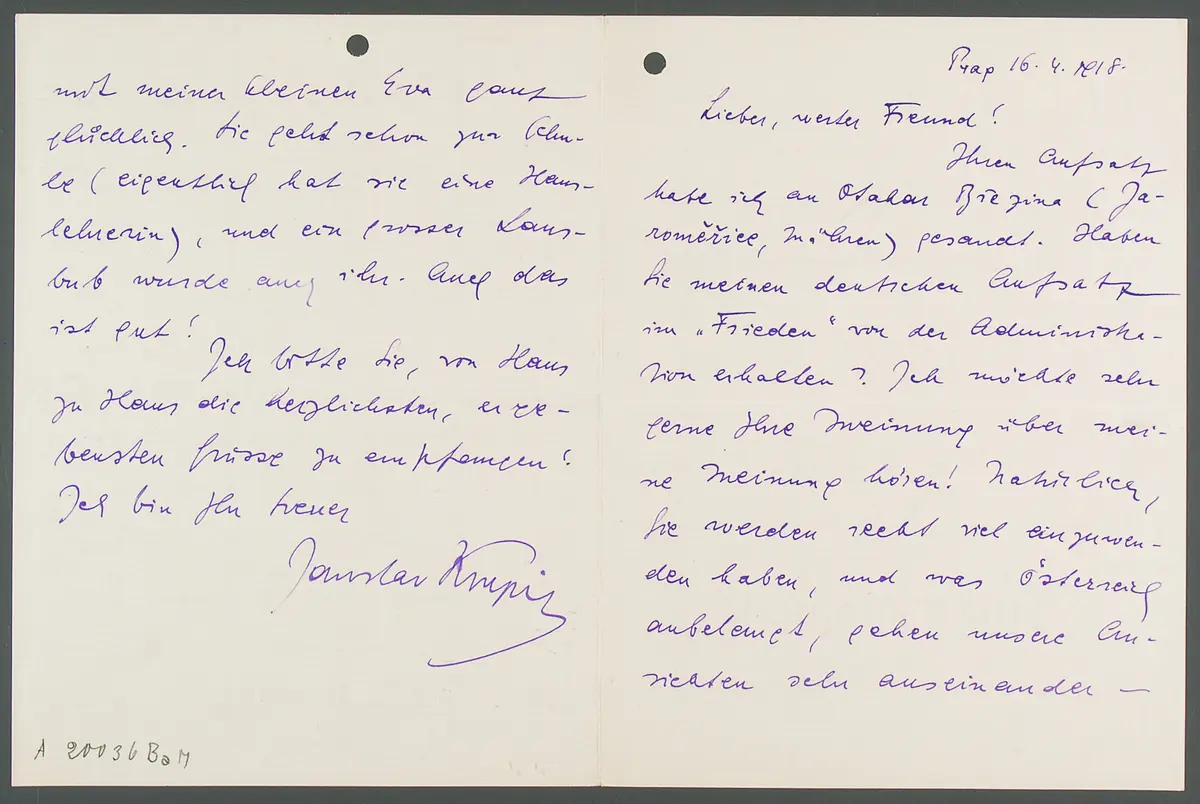 Prag 16. 4. 1918.
Lieber, werter Freund!
Ihren Aufsatz
habe ich an Otakar Březina (Ja-
roměřice, Mähren) gesandt. Haben
Sie meinen deutschen Aufsatz
im „Frieden“ von der Administra-
tion erhalten? Ich möchte sehr
gerne Ihre Meinung über mei-
ne Meinung hören! Natürlich,
Sie werden recht viel einzuwen-
den haben, und was Österreich
anbelangt, gehen unsere An-
sichten sehr auseinander —
mit meiner kleinen Eva ganz
glücklich. Sie geht schon zur Schu-
le (eigentlich hat sie eine Haus-
lehrerin), und ein grosser Laus-
bub wurde aus ihr. Auch das
ist gut!
Ich bitte Sie, von Haus
zu Haus die herzlichsten, erge-
bensten Grüsse zu empfangen!
Ich bin Ihr treuer
Jaroslav Kvapil
A 20036 BaM